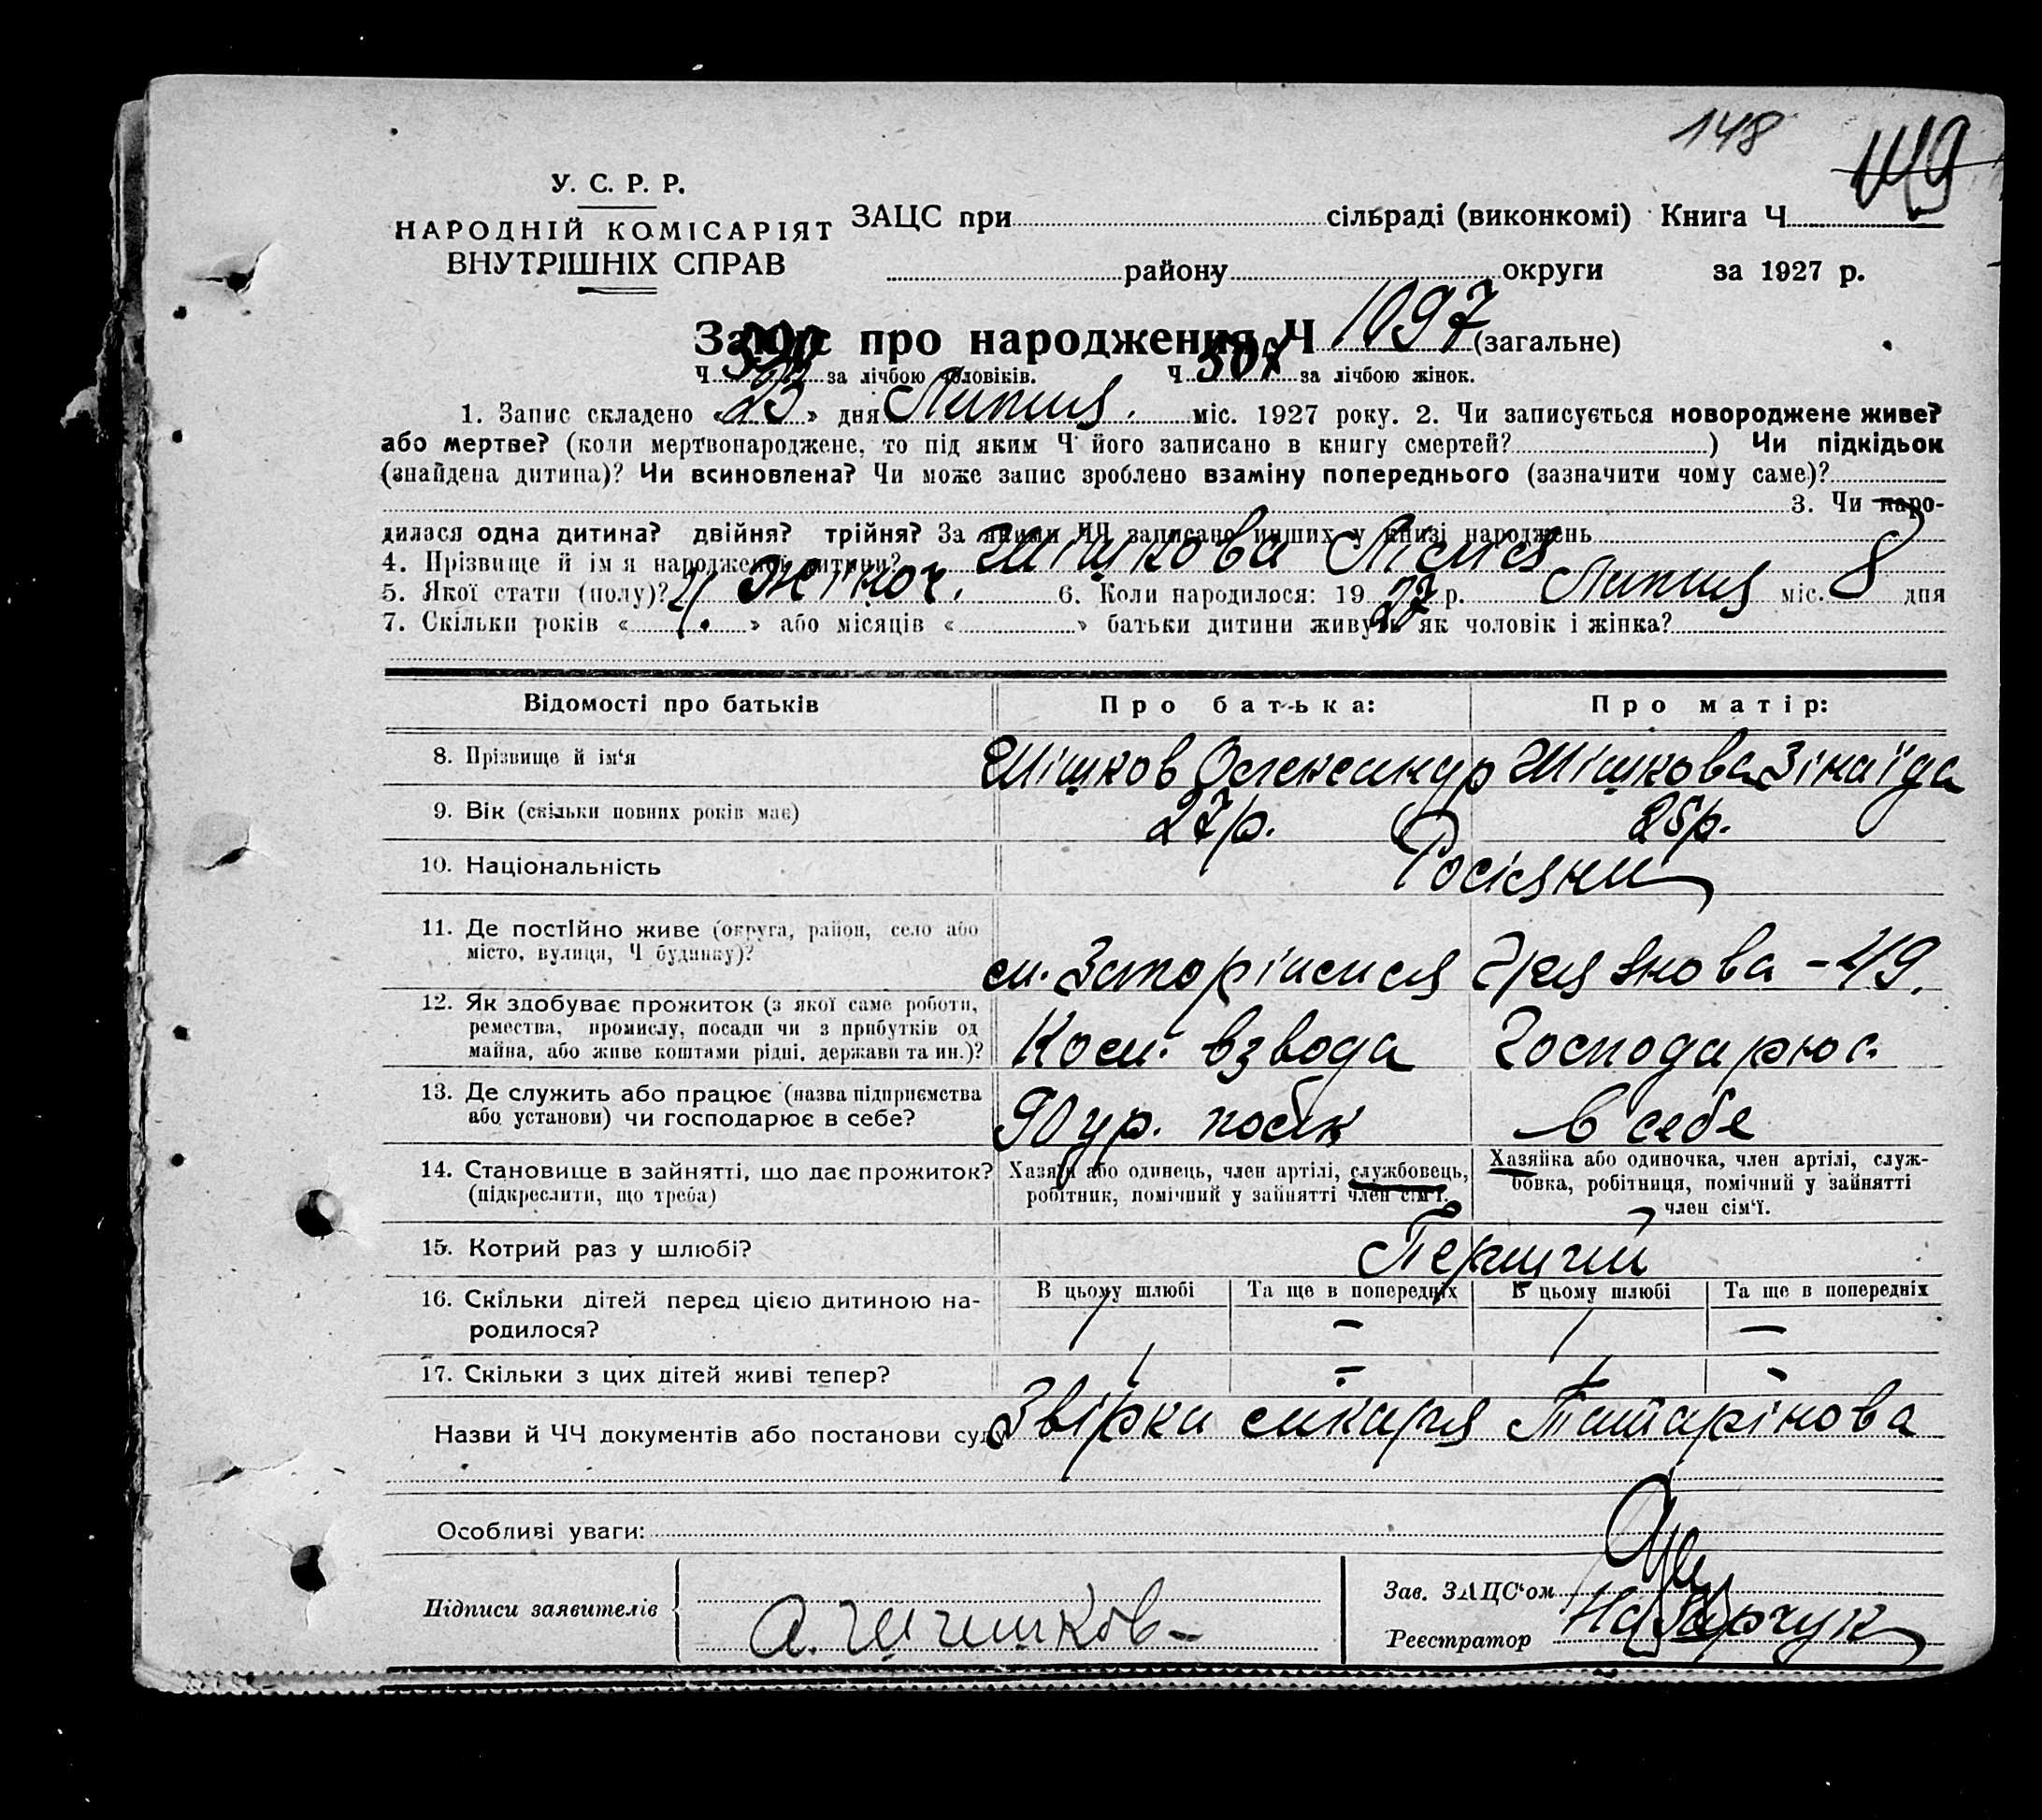 148
149
У. С. Р. Р.
НАРОДНІЙ КОМІСАРІЯТ
ВНУТРІШНІХ СПРАВ
ЗАЦС при сільраді (виконкомі) Книга Ч
району округи за 1927 р.
Запис про народження Ч 1097 (загальне)
Ч 590 за лічбою чоловіків. Ч 507 за лічбою жінок.
1. Запис складено «23» дня Липня. міс. 1927 року. 2. Чи записується новороджене живе?
або мертве? (коли мертвонароджене, то під яким Ч його записано в книгу смертей? ) Чи підкідьок
(знайдена дитина)? Чи всиновлена? Чи може запис зроблено взаміну попереднього (зазначити чому саме)?
3. Чи наро-
дилася одна дитина? двійня? трійня? За якими ЧЧ записано инших у книзі народжень
4. Прізвище й ім я народженої дитини? Шішкова
5. Якої статі (полу)? Жіноч. 6. Коли народилося: 19 27 р. Липня міс. 8 дня
7. Скільки років « 4. » або місяців « » батьки дитини живуть як чоловік і жінка?
Відомості про батьків
Про батька:
Про матір:
8. Прізвище й ім'я
Шішков Олександр
Шішкова Зінаїда
9. Вік (скільки повних років має)
27 р.
25 р.
10. Національність
Росіяни
11. Де постійно живе (округа, район, село або
місто, вулиця, Ч будинку)?
м. Запоріжжя Грязнова - 49.
12. Як здобуває прожиток (з якої саме роботи,
ремества, промислу, посади чи з прибутків од
майна, або живе коштами рідні, держави та ин.)?
Ком. взвода
Господарює
13. Де служить або працює (назва підприємства
або установи) чи господарює в себе?
90 ур. полк
в себе
14. Становище в зайнятті, що дає прожиток?
(підкреслити, що треба)
Хазяїн або одинець, член артілі, службовець,
робітник, помічний у зайнятті член сім'ї.
Хазяйка або одиночка, член артілі, служ-
бовка, робітниця, помічний у зайнятті
член сім'ї.
15. Котрий раз у шлюбі?
Перший
16. Скільки дітей перед цією дитиною на-
родилося?
В цьому шлюбі
Та ще в попередніх
В цьому шлюбі
Та ще в попередніх
1 - 1 -
17. Скільки з цих дітей живі тепер?
1 - 1 -
Назви й ЧЧ документів або постанови суду
Звірка лікаря Татарінова
Особливі уваги:
Підписи заявителів
А. Шишков
Зав. ЗАЦС'ом
Реєстратор
Назарчук